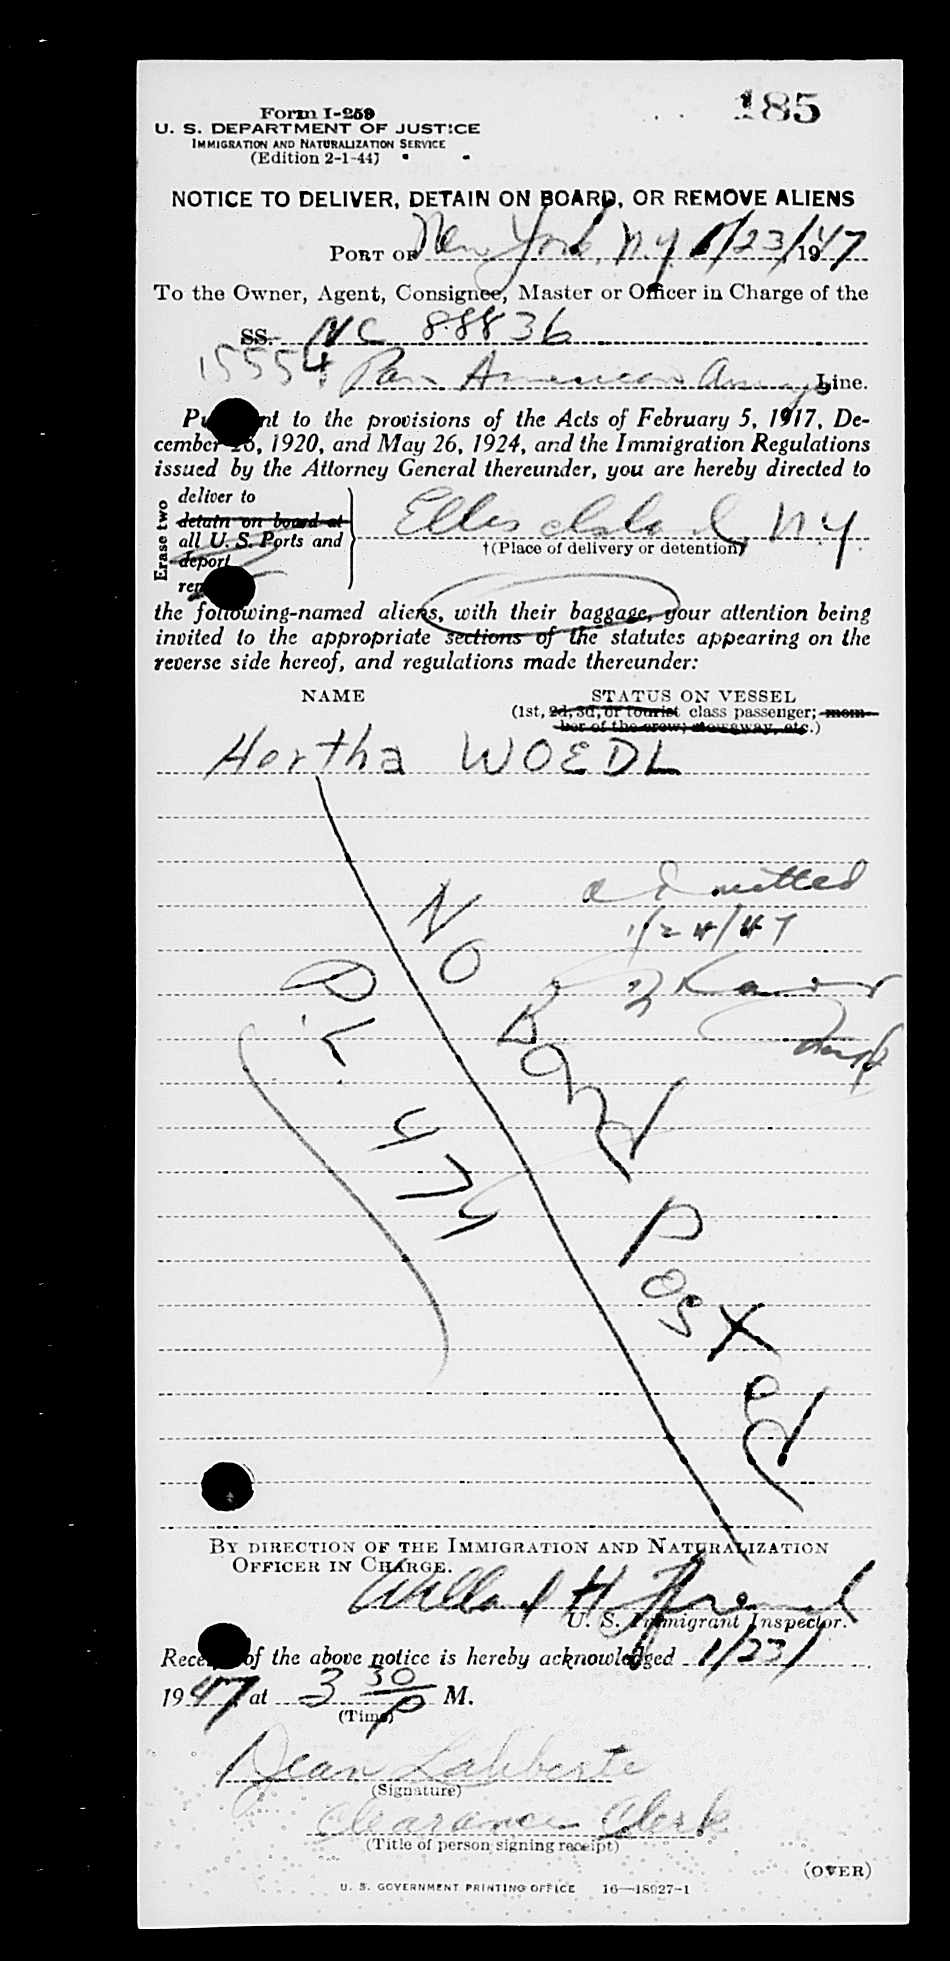 185
Form I-259
U. S. DEPARTMENT OF JUSTICE
IMMIGRATION AND NATURALIZATION SERVICE
(Edition 2-1-44)
NOTICE TO DELIVER, DETAIN ON BOARD, OR REMOVE ALIENS
PORT OF New York, N.Y. 1/23/1947
To the Owner, Agent, Consignee, Master or Officer in Charge of the
SS. NC 88836
15554 Pan American Line.
nt to the provisions of the Acts of February 5, 1917, De-
cember 26, 1920, and May 26, 1924, and the Immigration Regulations
issued by the Attorney General thereunder, you are hereby directed to
Erase two
deliver to
detain on board at
all U. S. Ports and
deport
Ellis Island, N.Y.
†(Place of delivery or detention)
the following-named aliens, with their baggage, your attention being
invited to the appropriate sections of the statutes appearing on the
reverse side hereof, and regulations made thereunder:
NAME STATUS ON VESSEL
(1st, 2d, 3d, or tourist class passenger; mem-
ber of the crew; stowaway, etc.)
Hertha WOEDL
admitted
1/24/47
No Bond Posted
P.L. 474
BY DIRECTION OF THE IMMIGRATION AND NATURALIZATION
OFFICER IN CHARGE.
Willard H. French
U. S. Immigrant Inspector.
of the above notice is hereby acknowledged 1/23/
1947 at 3 30/P M.
(Time)
Jean Laliberte
(Signature)
Clearance Clerk
(Title of person signing receipt)
(OVER)
U. S. GOVERNMENT PRINTING OFFICE 16—18927-1